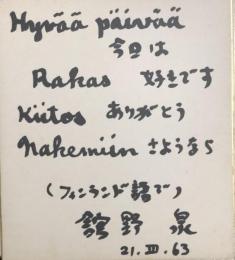 Hyvää päivää
今日は
Rakas 好きです
Kiitos ありがとう
Nakemiin さようなら
(フィンランド語で)
舘野 泉
21. III. 63